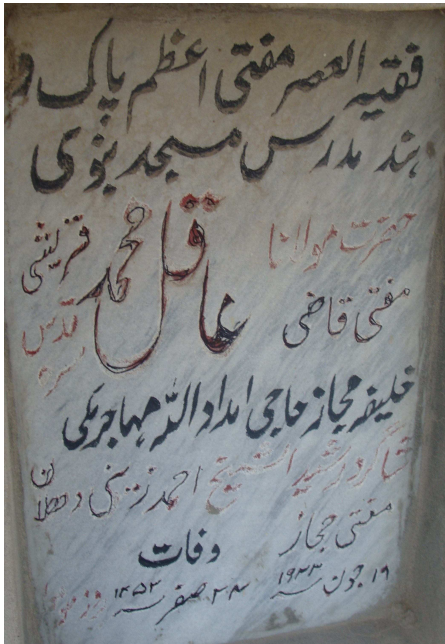 فقیہ العصر مفتی اعظم پاک و
ہند مدرس مسجد نبوی
حضرت مولانا
مفتی قاضی عاقل محمد قریشی
قدس سرہ
خلیفہ مجاز حاجی امداد اللہ مہاجر مکی
شاگرد رشید الشیخ احمد زینی دحلان
مفتی حجاز
وفات
۱۹ جون ۱۹۳۳ ۲۴ صفر ۱۳۵۲